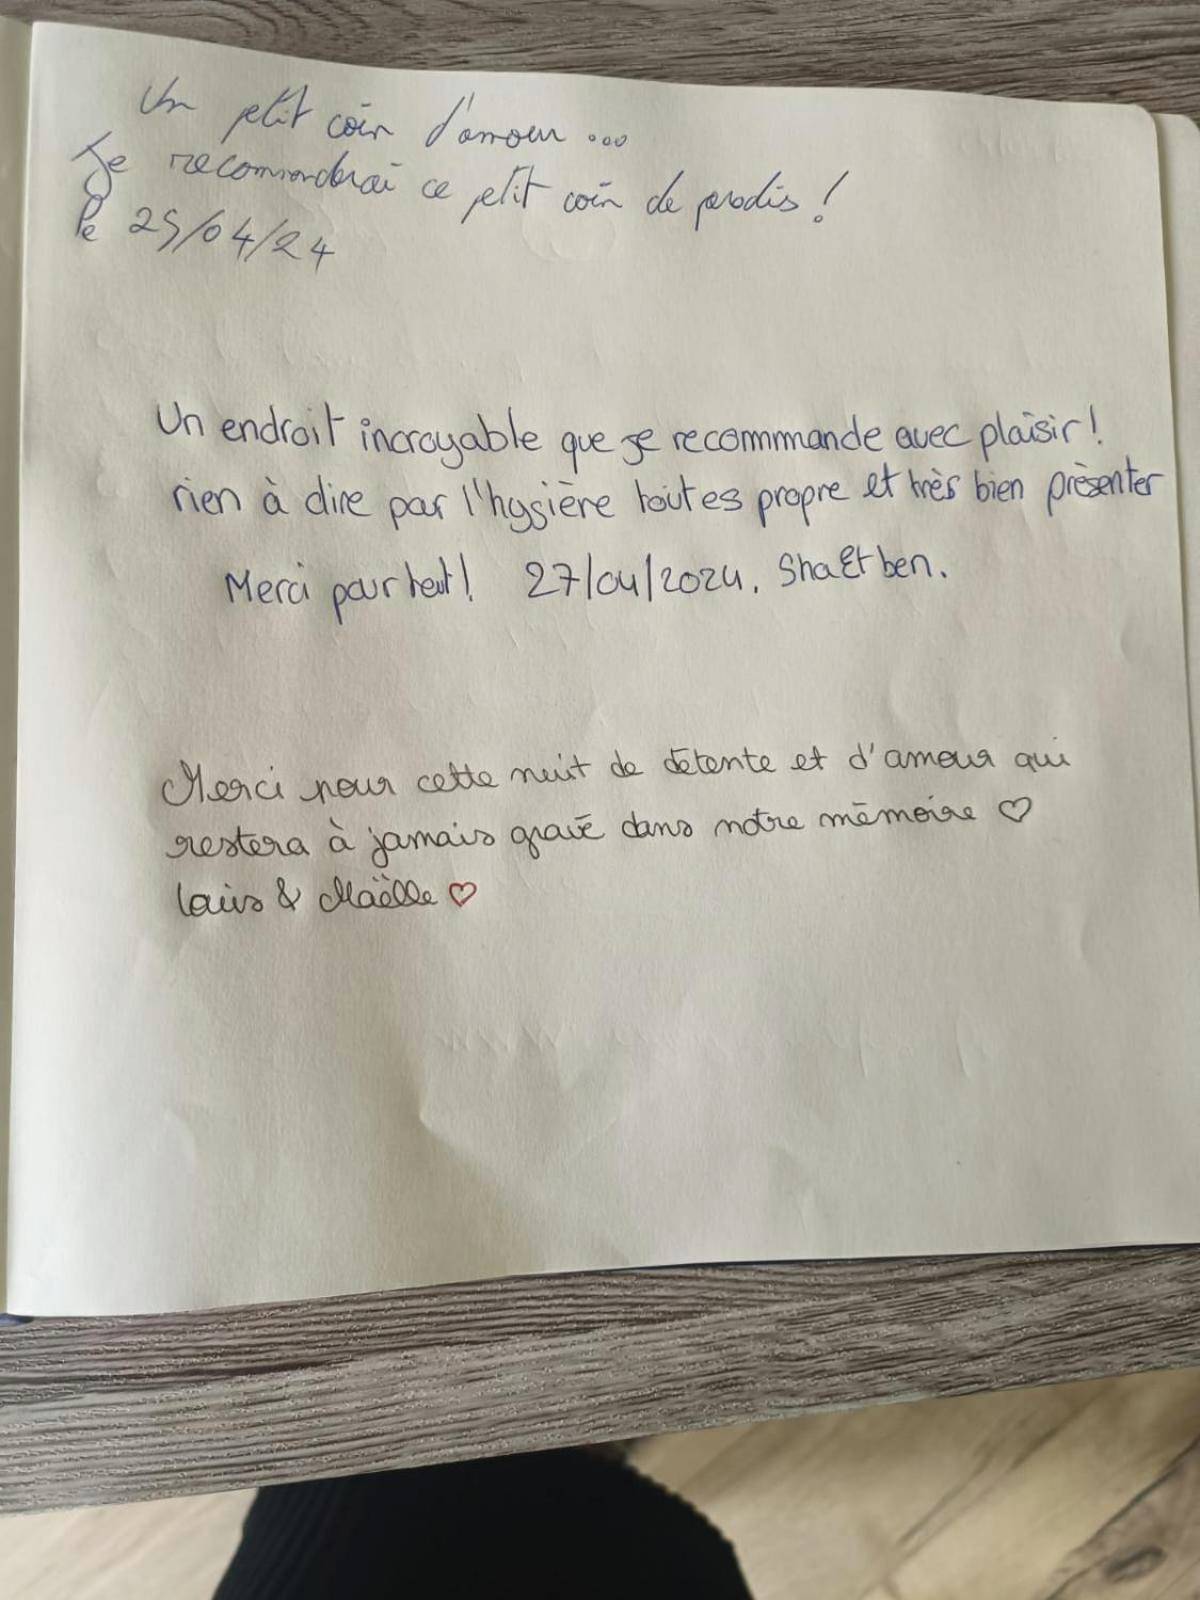 Un petit coin d'amour ...
Je recommandrai ce petit coin de paradis !
le 25/04/24
Un endroit incroyable que je recommmande avec plaisir !
rien à dire par l'hygsière toutes propre et très bien présenter
Merci pour tout ! 27/04/2024. Sha Et ben.
Merci pour cette nuit de détente et d'amour qui
restera à jamais gravé dans notre mémoire ♡
Louis & Maëlle ♡